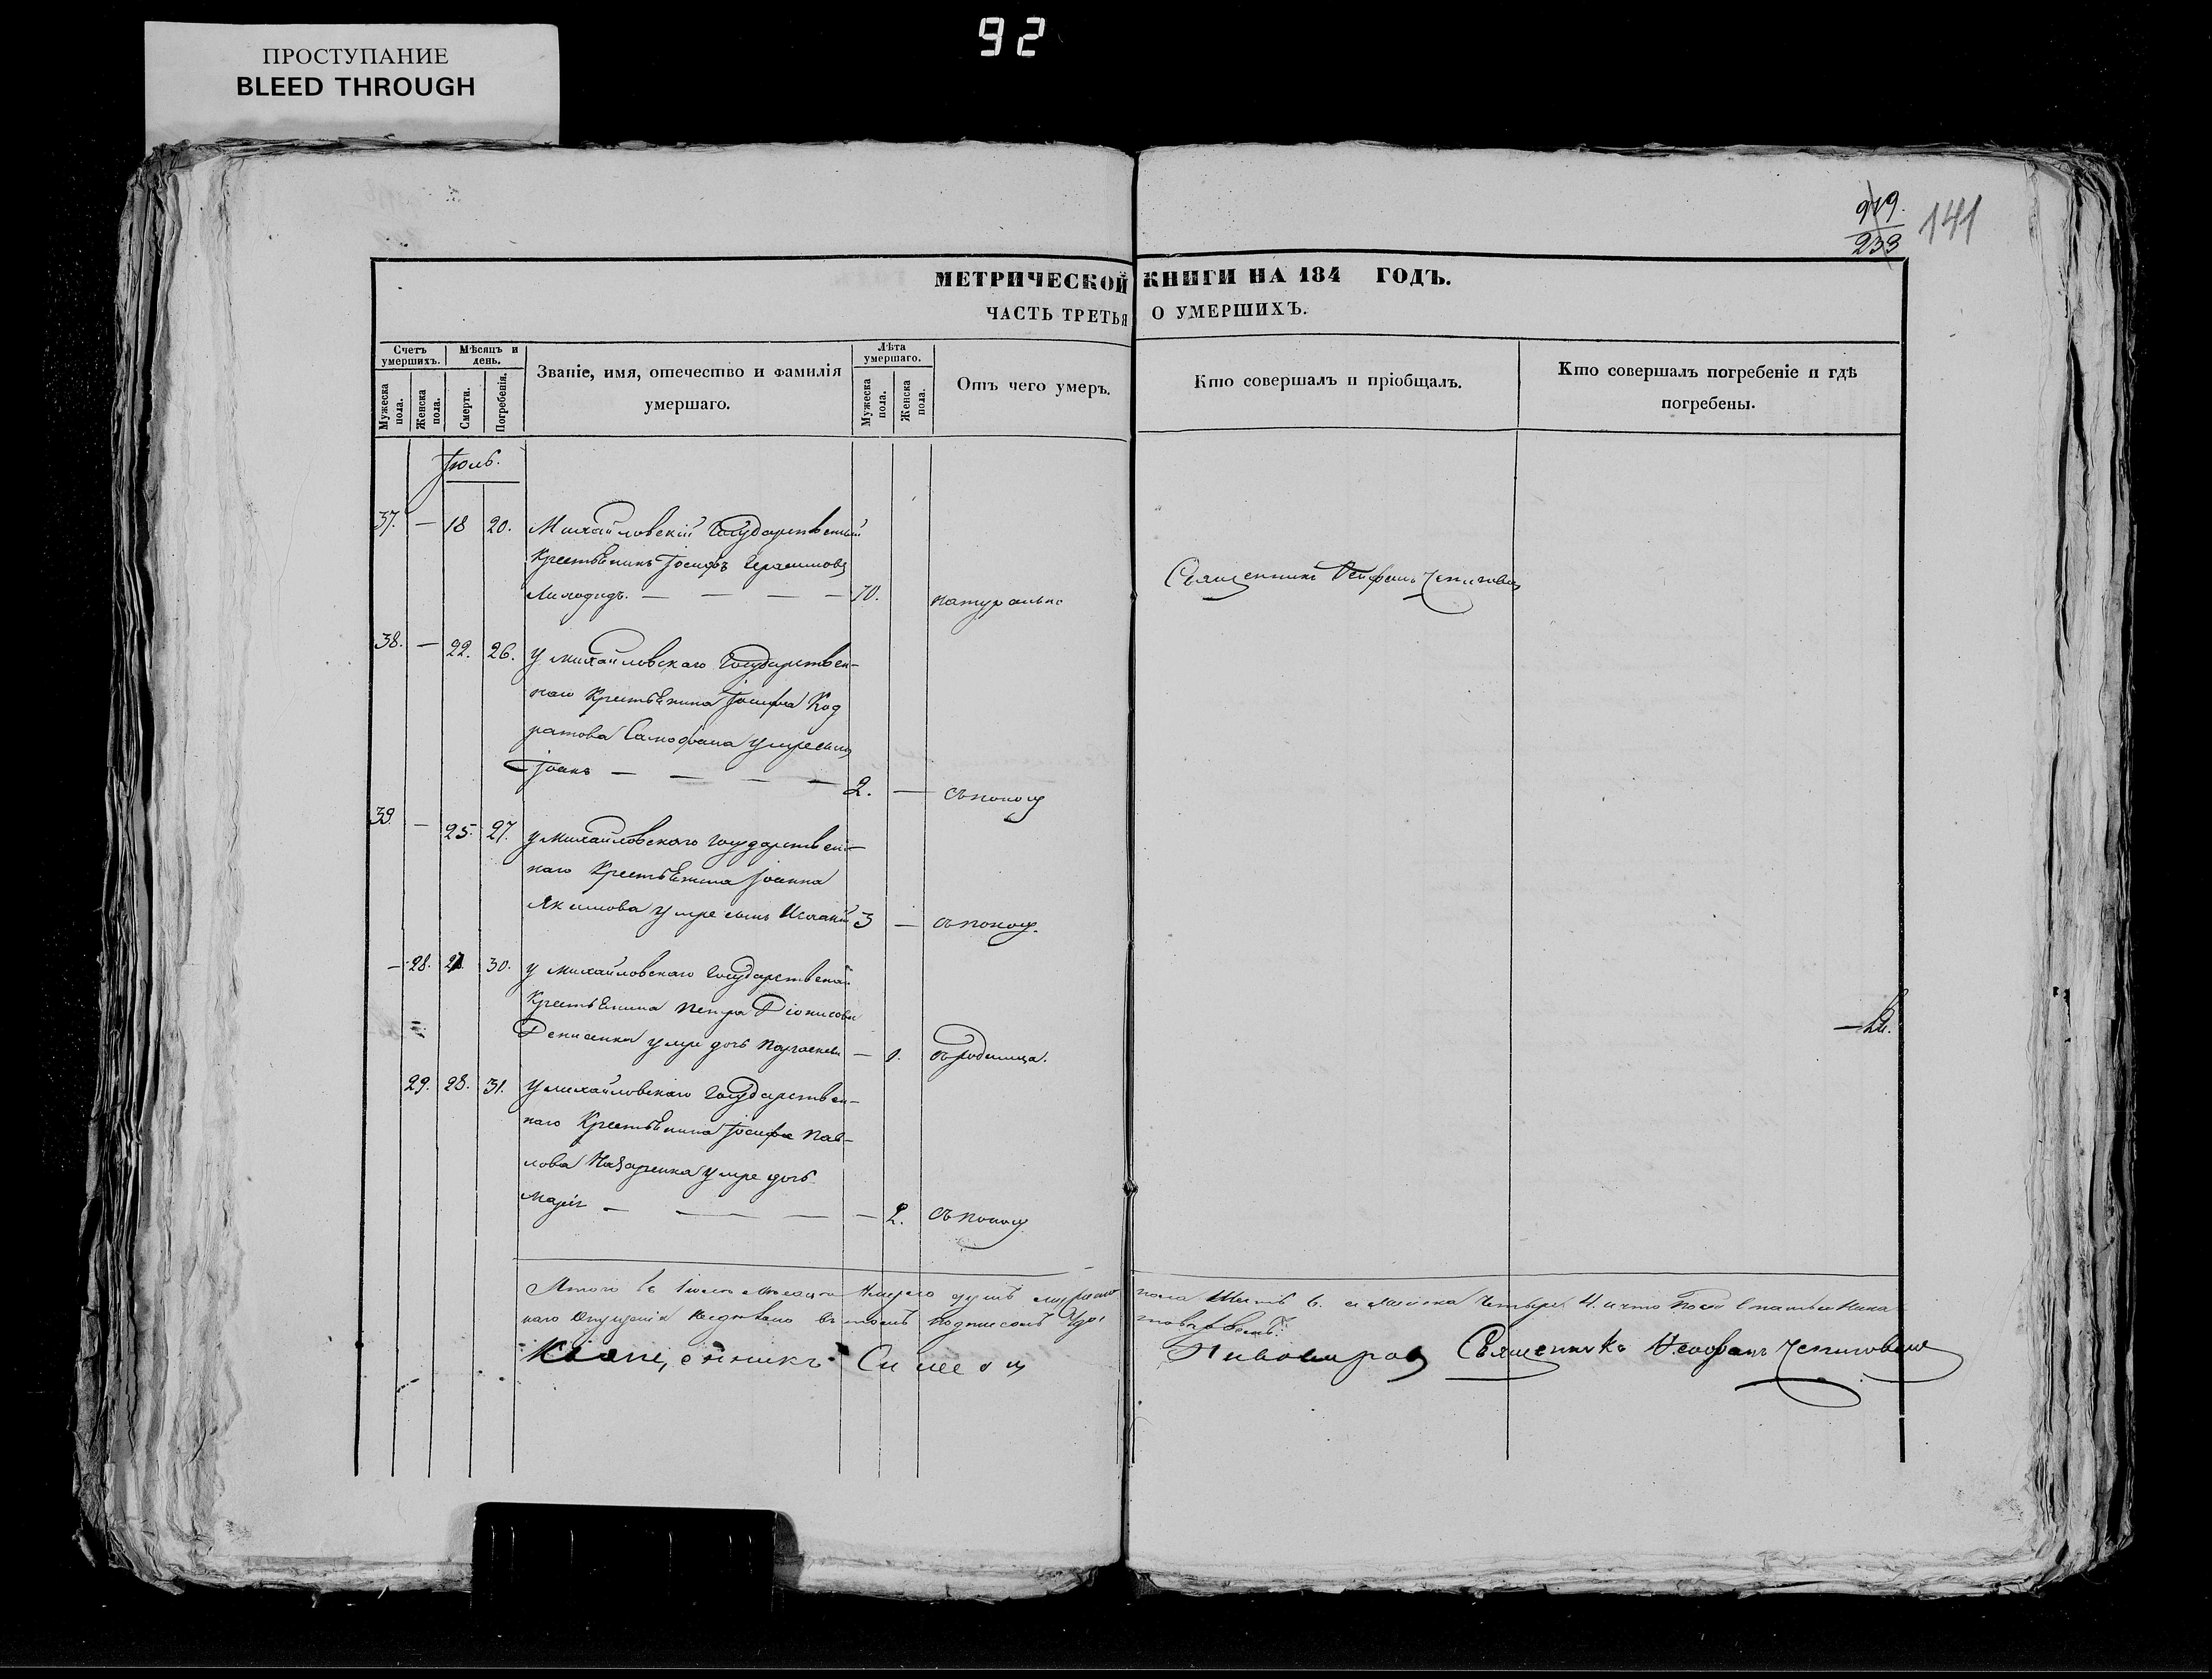 92
ПРОСТУПАНИЕ
BLEED THROUGH
919.
233
141
МЕТРИЧЕСКОЙ КНИГИ НА 184 ГОДЪ.
ЧАСТЬ ТРЕТЬЯ О УМЕРШИХЪ.
Счетъ умершихъ.
Мужеска пола.
Женска пола.
Мѣсяцъ и день.
Смерти.
Погребенія.
Званіе, имя, отечество и фамилія
умершаго.
Лѣта умершаго.
Мужеска пола.
Женска пола.
Отъ чего умеръ.
Кто совершалъ и пріобщалъ.
Кто совершалъ погребеніе и гдѣ
погребены.
Іюль.
37. — 18 20. Михайловскій Государственный
Крестьянинъ Іосифъ Герасимовъ
— — — — 70. натурально
Священникъ Ѳеофанъ
38. — 22. 26. У михайловскаго Государствен-
наго Крестьянина Іосифа Код
ратова умре сынъ
Іоанъ — — — — 2. — съпокою
39. — 25. 27. у Михайловского государствен-
наго Крестьянина Іоанна
Якимова умре сынъ 3 — съпокою.
— 28. 27. 30. у михайловскаго Государствена
Крестьянина Петра Діонисова
Денисенка умре дочь — 1. съродимца.
29. 28. 31. у михайловскаго Государствен-
наго Крестьянина Іосифа Пав-
лова Назаренка умре дочь
Марія — — — — 2. съпокою
Итого въ Іюлѣ мѣсяцѣ умерло душъ мужеско пола Шесть 6. а женска Четыри 4. и что
въ томъ подписомъ
Священникъ Симеон Пивоваров Священникъ Ѳеофанъ